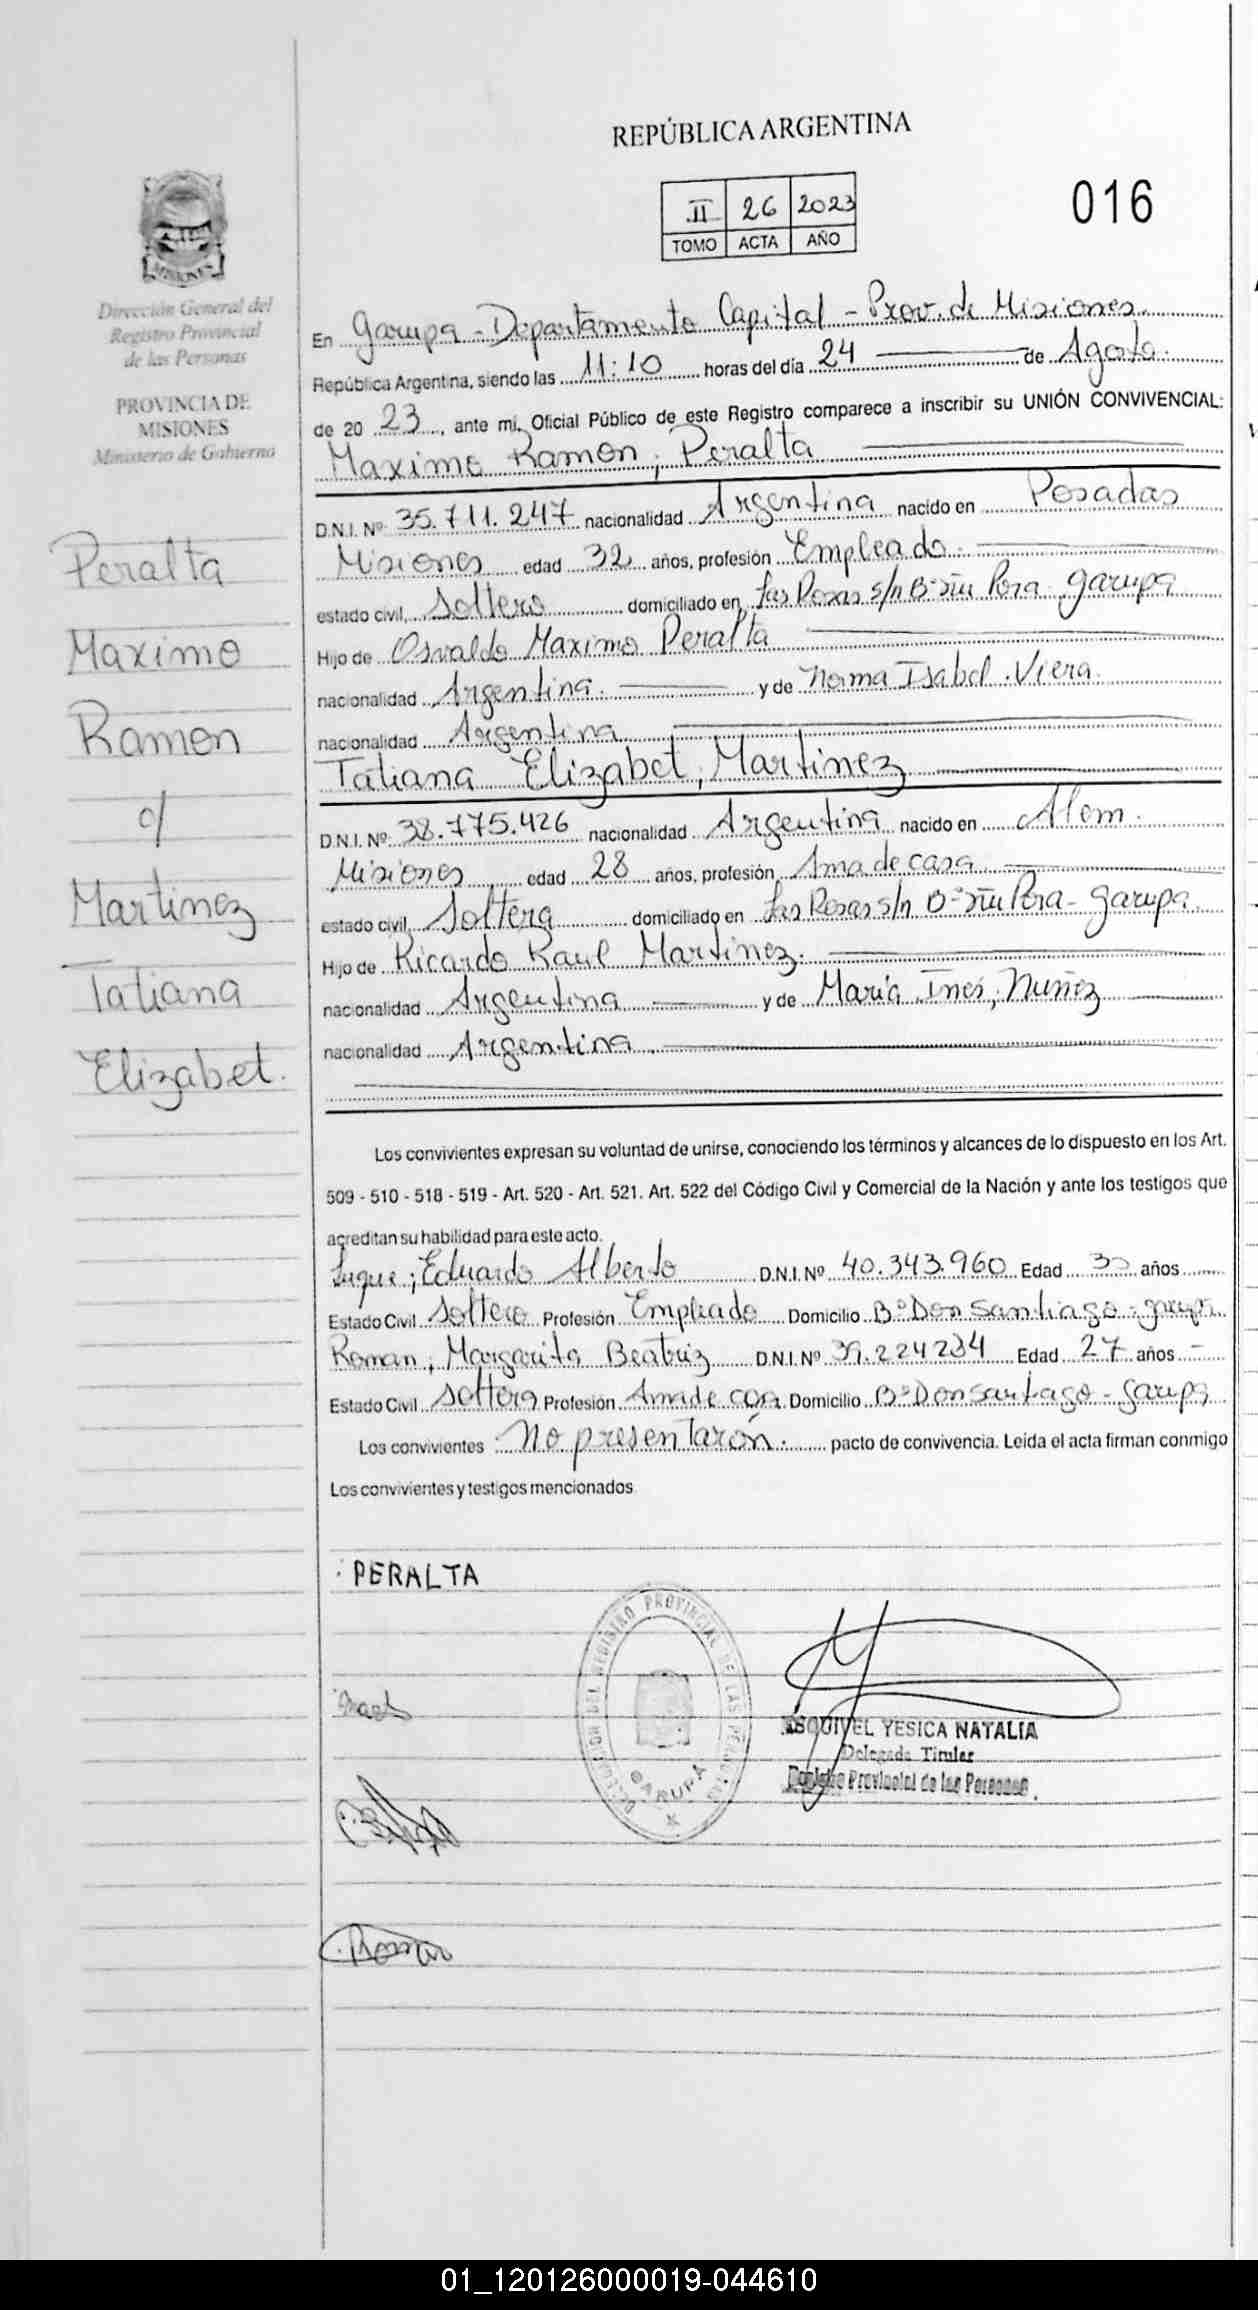 REPÚBLICA ARGENTINA
II 26 2023
TOMO ACTA AÑO
016
MISIONES
Dirección General del
Registro Provincial
de las Personas
PROVINCIA DE
MISIONES
Ministerio de Gobierno
Peralta
Maximo
Ramon
c/
Martinez
Tatiana
Elizabet.
En Garupa - Departamento Capital - Prov. de Misiones.
República Argentina, siendo las 11:10 horas del día 24 de Agosto.
de 20 23, ante mí, Oficial Público de este Registro comparece a inscribir su UNIÓN CONVIVENCIAL:
Maximo Ramon, Peralta
D.N.I. Nº 35.711.247 nacionalidad Argentina nacido en Posadas
Misiones edad 32 años, profesión Empleado.
estado civil, Soltero domiciliado en Las Rosas s/n Bº Pora Garupa
Hijo de Osvaldo Maximo Peralta
nacionalidad Argentina. y de Norma Isabel Viera.
nacionalidad Argentina
Tatiana Elizabet, Martinez
D.N.I. Nº 38.775.426 nacionalidad Argentina nacido en Alem.
Misiones edad 28 años, profesión Ama de casa
estado civil, Soltera domiciliado en Las Rosas s/n Bº Pora - Garupa.
Hijo de Ricardo Raul Martinez.
nacionalidad Argentina y de Maria Ines, Nuñez
nacionalidad Argentina.
Los convivientes expresan su voluntad de unirse, conociendo los términos y alcances de lo dispuesto en los Art.
509 - 510 - 518 - 519 - Art. 520 - Art. 521. Art. 522 del Código Civil y Comercial de la Nación y ante los testigos que
acreditan su habilidad para este acto.
Luque; Eduardo Alberto D.N.I. Nº 40.343.960 Edad años
Estado Civil Soltero Profesión Empleado Domicilio Bº Don Santiago - Garupa.
Roman, Margarita Beatriz D.N.I. Nº 39.224234 Edad 27 años -
Estado Civil Soltera Profesión Ama de casa Domicilio Bº Don Santiago - Garupa
Los convivientes No presentarón. pacto de convivencia. Leída el acta firman conmigo
Los convivientes y testigos mencionados
PERALTA
DELEGACION DEL REGISTRO PROVINCIAL DE LAS PERSONAS
GARUPA
ESQUIVEL YESICA NATALIA
Delegada Titular
Registro Provincial de las Personas
Roman
01_120126000019-044610